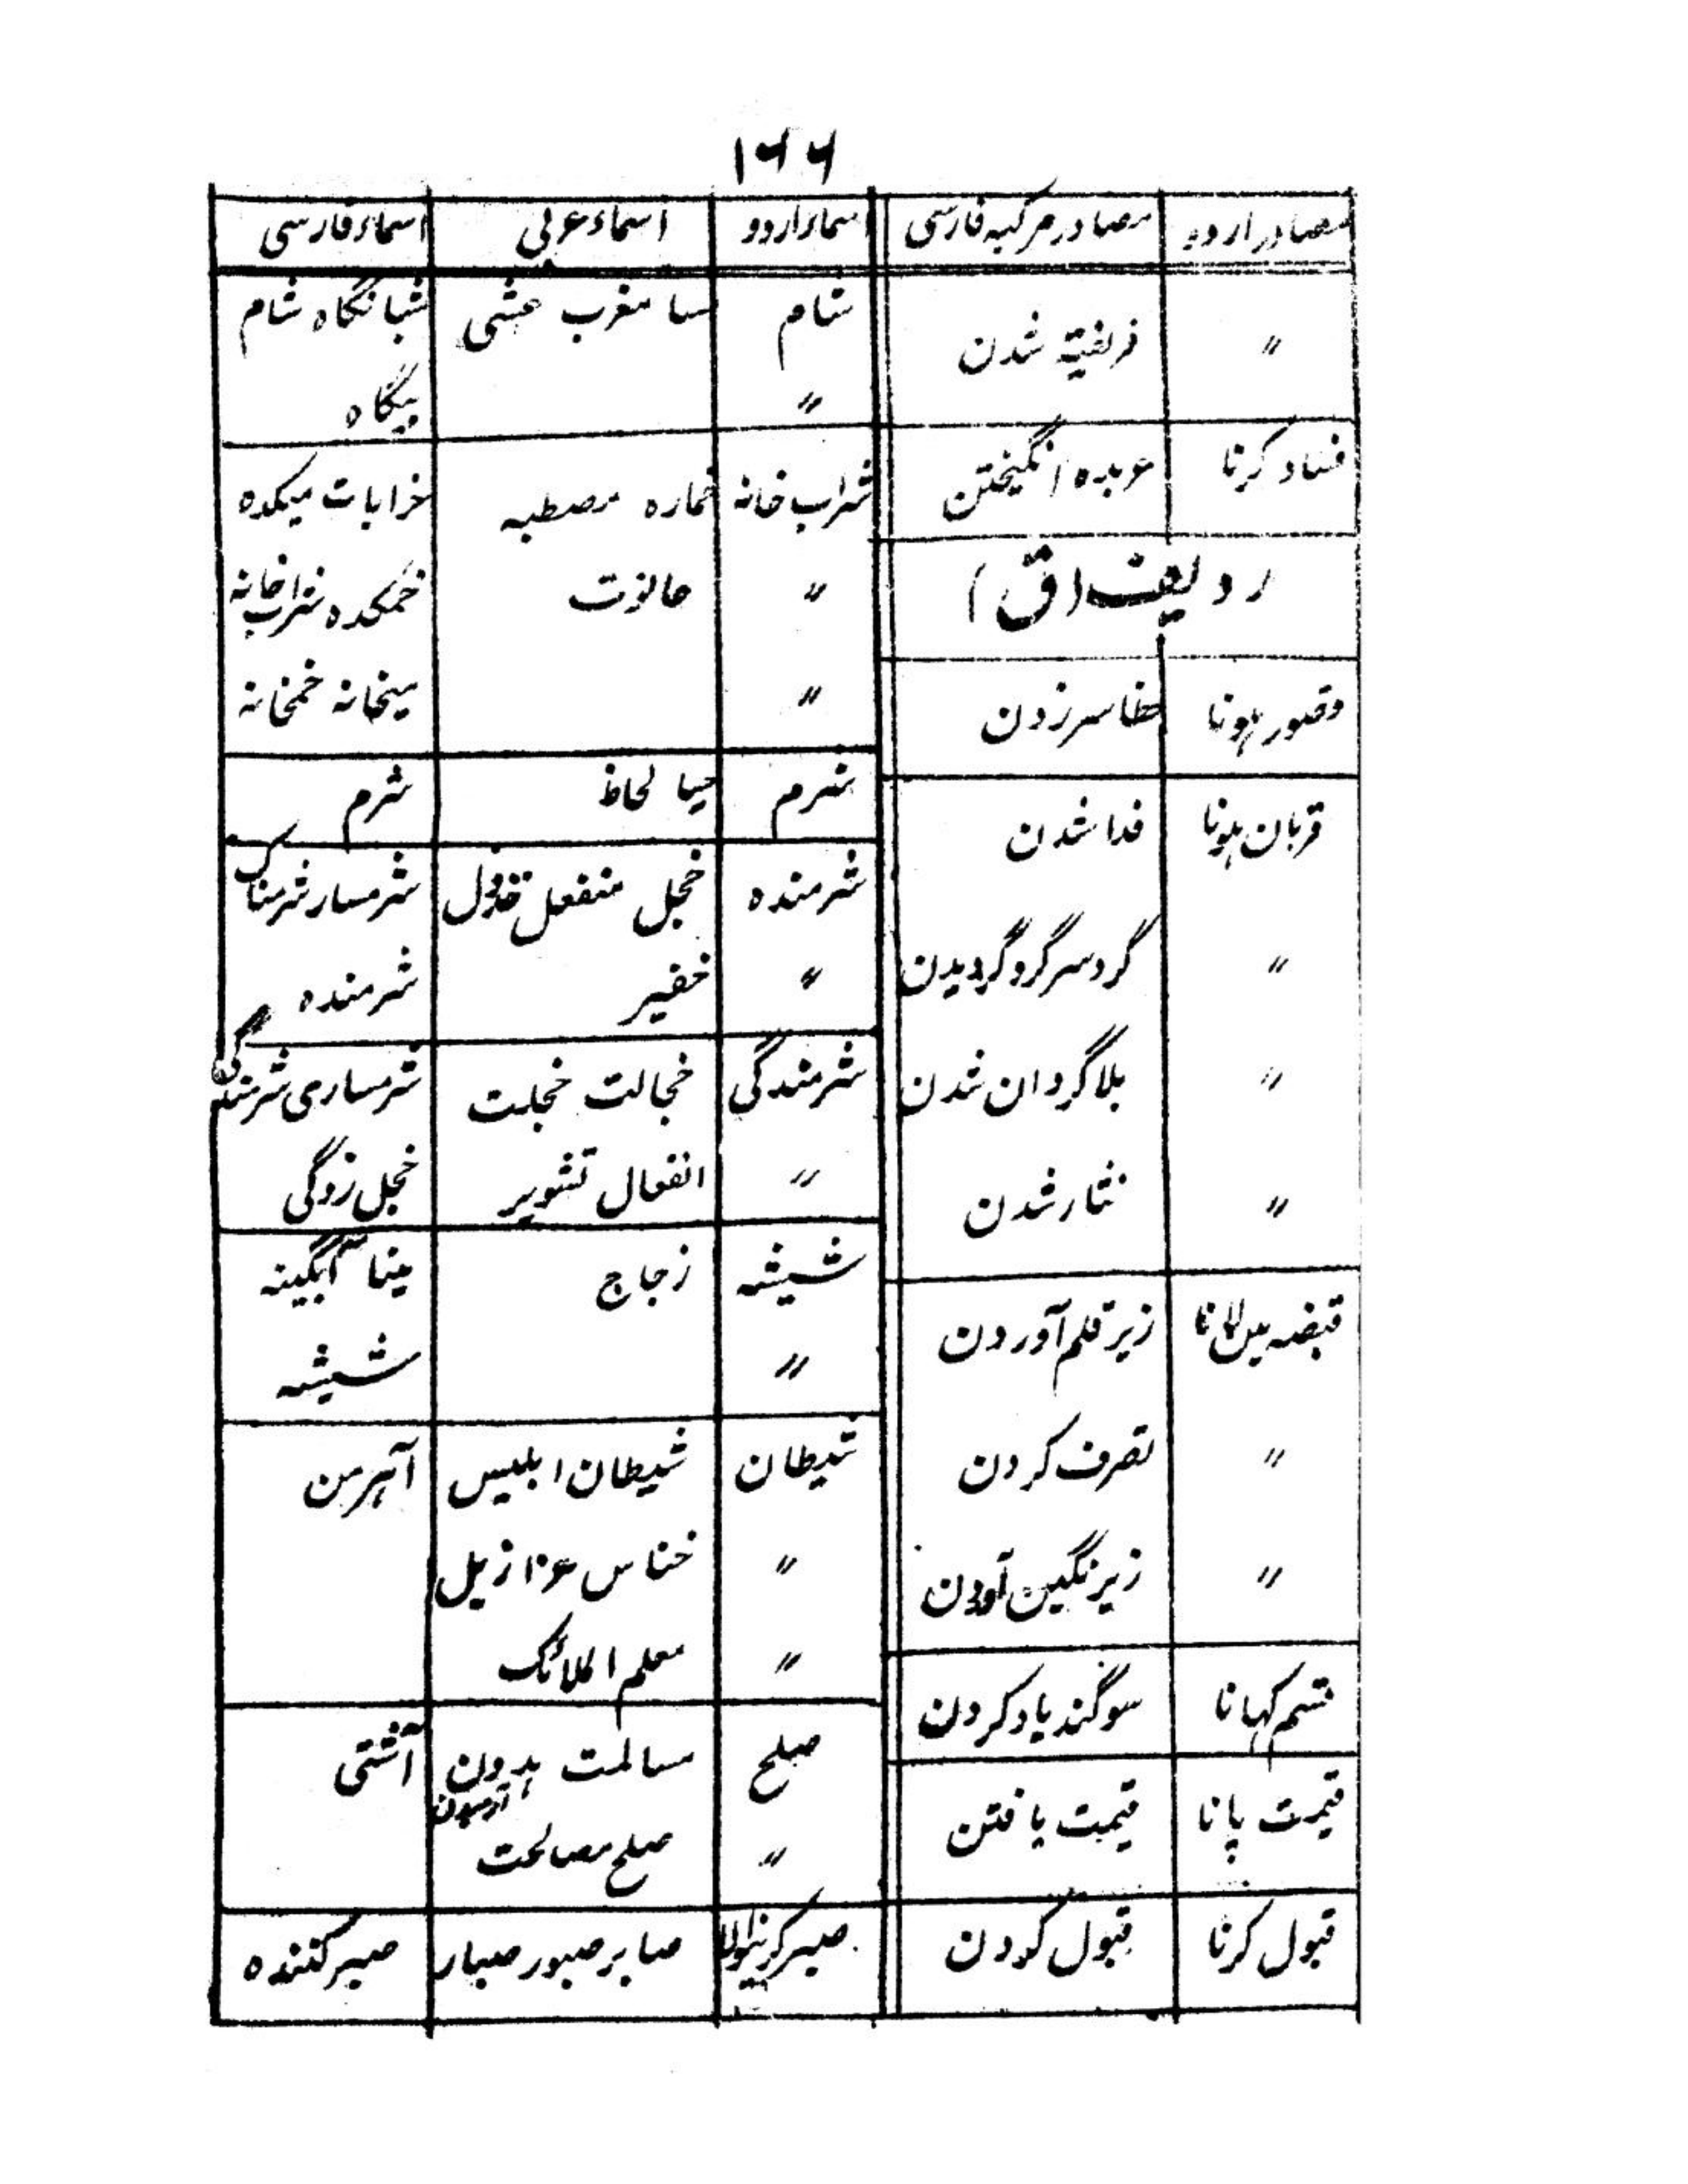 ۱۶۶
مصادر اردو مصادر مرکبہ فارسی اسماء اردو اسماء عربی اسماء فارسی
〃 فریفتہ شدن
فساد کرنا عربدہ انگیختن
ردیف (ق)
وقصور ہونا خطا سرزدن
قربان ہونا فدا شدن
〃 گرد سر گرد گردیدن
〃 بلا گردان شدن
〃 نثار شدن
قبضہ میں لانا زیر قلم آوردن
〃 تصرف کردن
〃 زیر نگین آوردن
قسم کہانا سوگند یاد کردن
قیمت پانا قیمت یافتن
قبول کرنا قبول کردن
شام مسا مغرب عشی شبانگاہ شام
〃 بیگاہ
شراب خانہ خمارہ مصطبہ خرابات میکدہ
〃 حانوت خمکدہ شراب خانہ
〃 میخانہ خمخانہ
شرم حیا لحاظ شرم
شرمندہ خجل منفعل شرمسار شرمناک
〃 خفیر شرمندہ
شرمندگی خجالت خجلت شرمساری شرمندگی
〃 انفعال تشویر خجل زدگی
شیشہ زجاج مینا آبگینہ
〃 شیشہ
شیطان شیطان ابلیس آہرمن
〃 خناس عزازیل
〃 معلم الملائک
صلح مسالمت ہدون آشتی
〃 صلح مصالحت
صبر کرنیوالا صابر صبور صبار صبر کنندہ